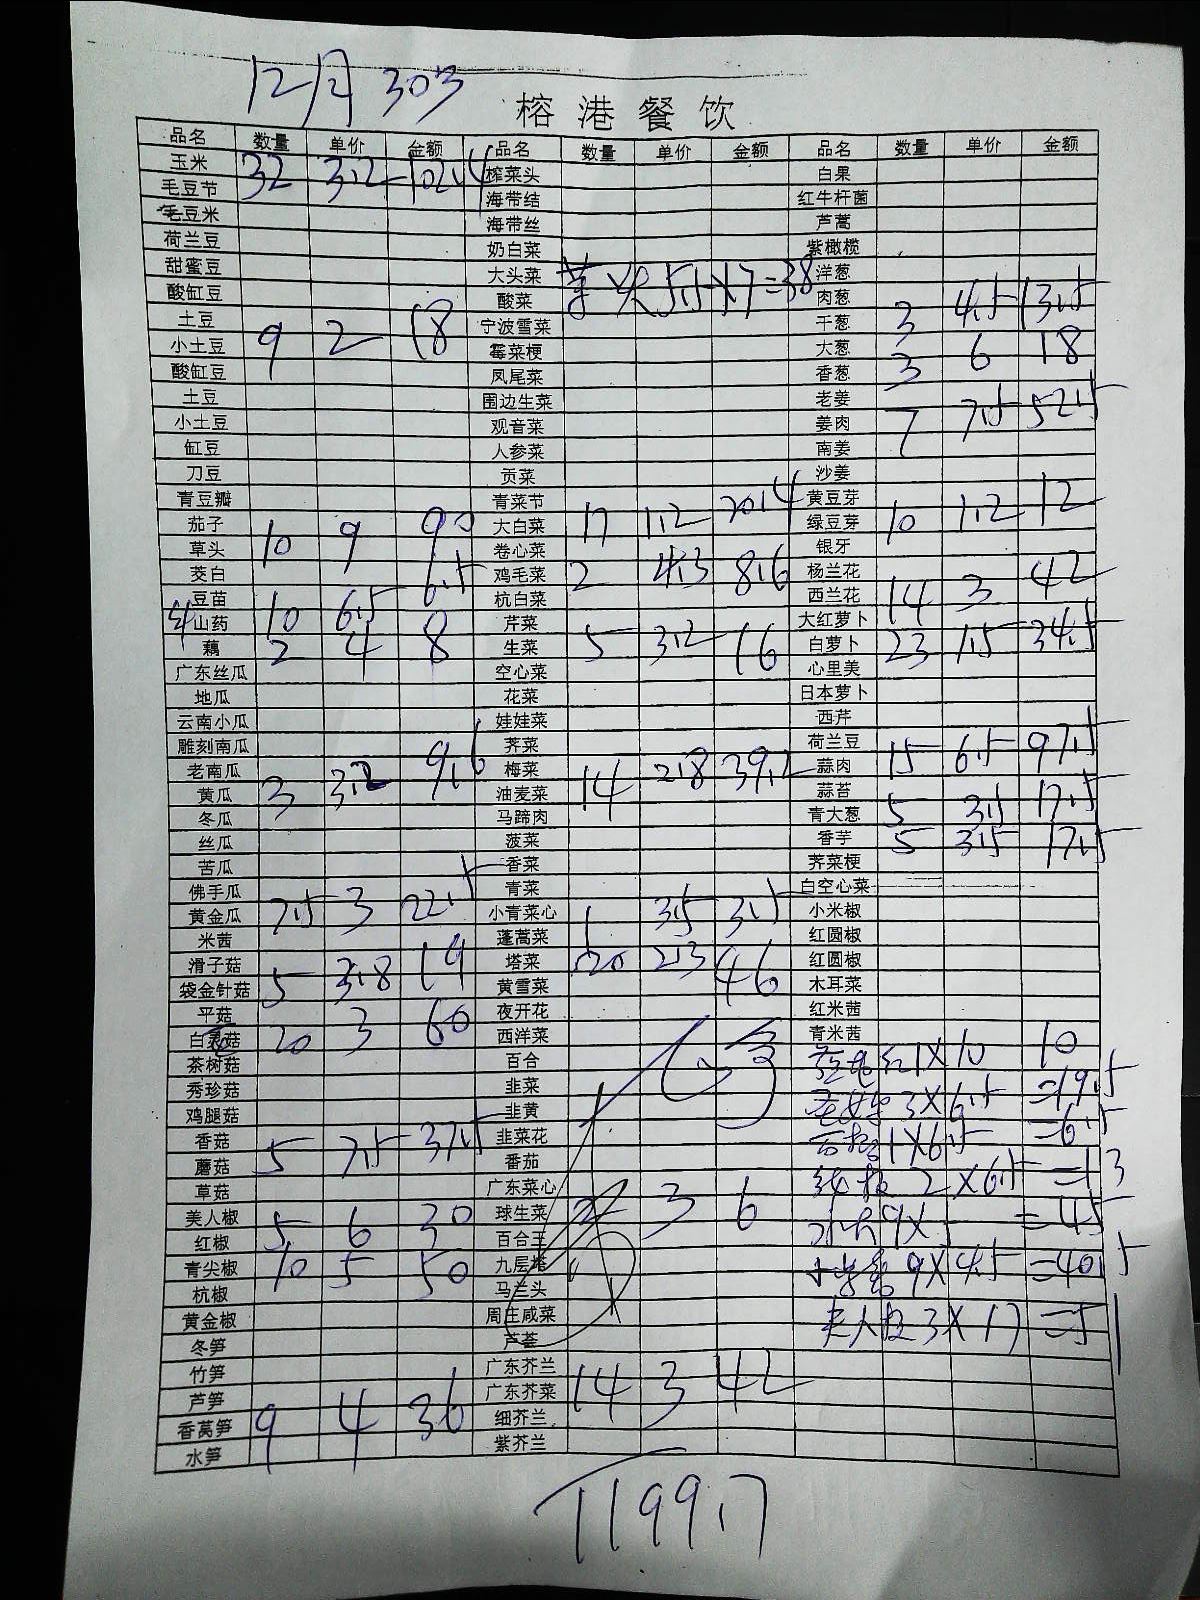 12月30号
榕港餐饮
品名 数量 单价 金额 品名 数量 单价 金额 品名 数量 单价 金额
玉米 32 3.2 102.4 榨菜头 白果
毛豆节 海带结 红牛杆菌
毛豆米 海带丝 芦蒿
荷兰豆 奶白菜 紫橄榄
甜蜜豆 大头菜 洋葱
酸缸豆 酸菜 肉葱 3 4.5 13.5
土豆 宁波雪菜 干葱
小土豆 9 2 18 霉菜梗 大葱 3 6 18
酸缸豆 凤尾菜 香葱
土豆 围边生菜 老姜
小土豆 观音菜 姜肉 7 7.5 52.5
缸豆 人参菜 南姜
刀豆 贡菜 沙姜
青豆瓣 青菜节 黄豆芽
茄子 10 9 90 大白菜 17 1.2 20.4 绿豆芽 10 1.2 12
草头 卷心菜 银牙
茭白 鸡毛菜 2 4.3 8.6 杨兰花
豆苗 杭白菜 西兰花 14 3 42
山药 10 6.5 65 芹菜 大红萝卜
藕 2 4 8 生菜 5 3.2 16 白萝卜 23 1.5 34.5
广东丝瓜 空心菜 心里美
地瓜 花菜 日本萝卜
云南小瓜 娃娃菜 西芹
雕刻南瓜 荠菜 荷兰豆
老南瓜 梅菜 14 2.8 39.2 蒜肉 15 6.5 97.5
黄瓜 3 3.2 9.6 油麦菜 蒜苔
冬瓜 马蹄肉 青大葱 5 3.5 17.5
丝瓜 菠菜 香芋 5 3.5 17.5
苦瓜 香菜 荠菜梗
佛手瓜 青菜 白空心菜
黄金瓜 7.5 3 22.5 小青菜心 1 3.5 3.5 小米椒
米茜 蓬蒿菜 红圆椒
滑子菇 塔菜 20 2.3 46 红圆椒
袋金针菇 5 3.8 19 黄雪菜 木耳菜
平菇 夜开花 红米茜
白灵菇 20 3 60 西洋菜 青米茜
茶树菇 百合 红1X10 10
秀珍菇 韭菜 3X6.5 =19.5
鸡腿菇 韭黄 1X6.5 =6.5
香菇 5 7.5 37.5 韭菜花 2X6.5 =13
蘑菇 番茄 9X =45
草菇 广东菜心 9X4.5 =40.5
美人椒 5 6 30 球生菜 2 3 6 3X17 =51
红椒 百合王
青尖椒 10 5 50 九层塔
杭椒 马兰头
黄金椒 周庄咸菜
冬笋 芦荟
竹笋 广东芥兰
芦笋 广东芥菜 14 3 42
香莴笋 9 4 36 细芥兰
水笋 紫芥兰
1199.7